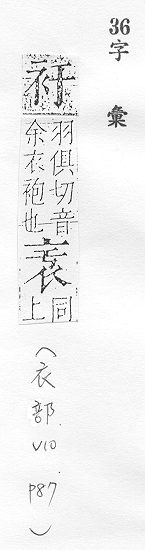 36字彙
衧
羽俱切音
余衣袍也
同
上
(衣部.V10.P87)